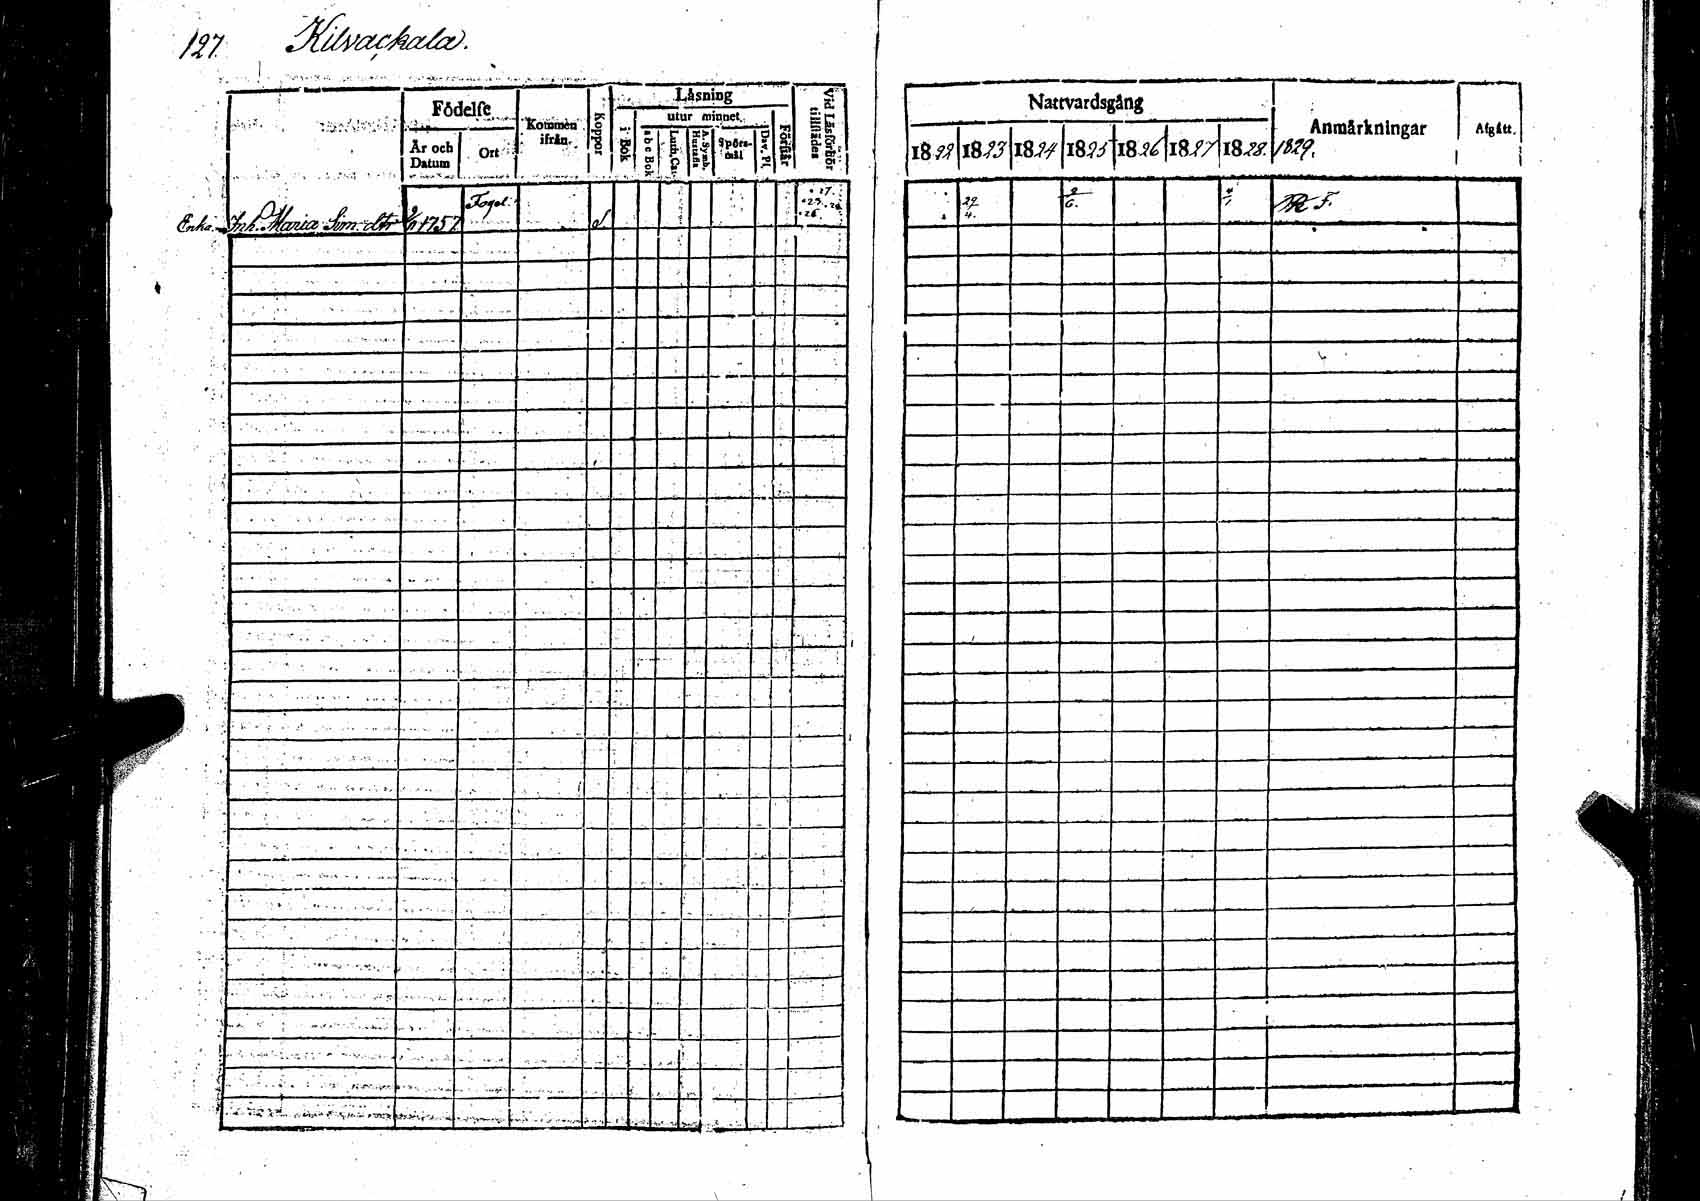 127. Kilvackala.
Födelse
Kommen ifrån.
Koppor
Läsning
Vid Läsförhör tillstädes
År och Datum
Ort
i Bok
utur minnet.
a b c Bok
Luth. Cat.
A. Symb. Hustafla
Spörs-mål
Dav. Ps.
Förstår
Nattvardsgång
Anmärkningar
Afgått.
1822 1823 1824 1825 1826 1827 1828. 1829.
Enka. Inh. Maria Sim: dtr 1757 Fogel.
29/4.
2/6.
F.